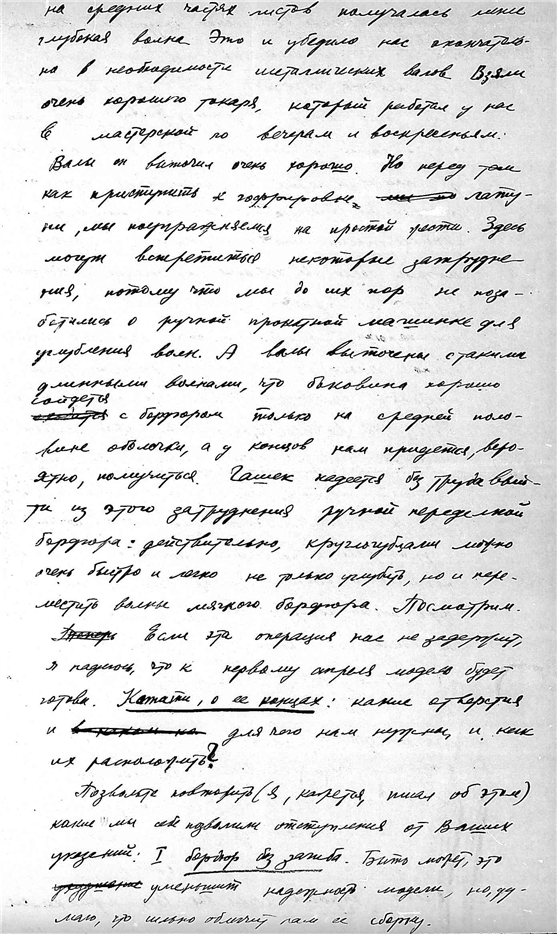 на средних частях листов получалась менее
глубокая волна Это и убедило нас окончатель-
но в необходимости металлических валов Взяли
очень хорошего токаря, который работал у нас
в мастерской по вечерам и воскресеньям.
Валы он выточил очень хорошо. Но перед тем
как приступить к гофрировке лату-
ни, мы поупражняемся на простой жести. Здесь
могут встретиться некоторые затрудне
ния, потому что мы до сих пор не поза-
ботились о ручной прокатной машинке для
углубления волн. А валы выточены с такими
длинными волнами, что боковина хорошо
сойдется
с бордюром только на средней поло-
вине оболочки, а у концов нам придется, веро-
ятно, помучиться. Гашек надеется без труда вый-
ти из этого затруднения ручной переделкой
бордюра: действительно, круглогубцами можно
очень быстро и легко не только углубить, но и пере-
местить волны мягкого бордюра. Посмотрим.
Теперь Если эта операция нас не задержит,
я надеюсь, что к первому апреля модель будет
готова. Кстати, о ее концах: какие отверстия
и в каком ко для чего нам нужны, и как
их расположить?
Позвольте повторить (я, кажется, писал об этом)
какие мы себе позволили отступления от Ваших
указаний. I бордюр без загиба. Быть может, это
уменьшит надежность модели, но, ду-
маю, что сильно облегчит нам ее сборку.